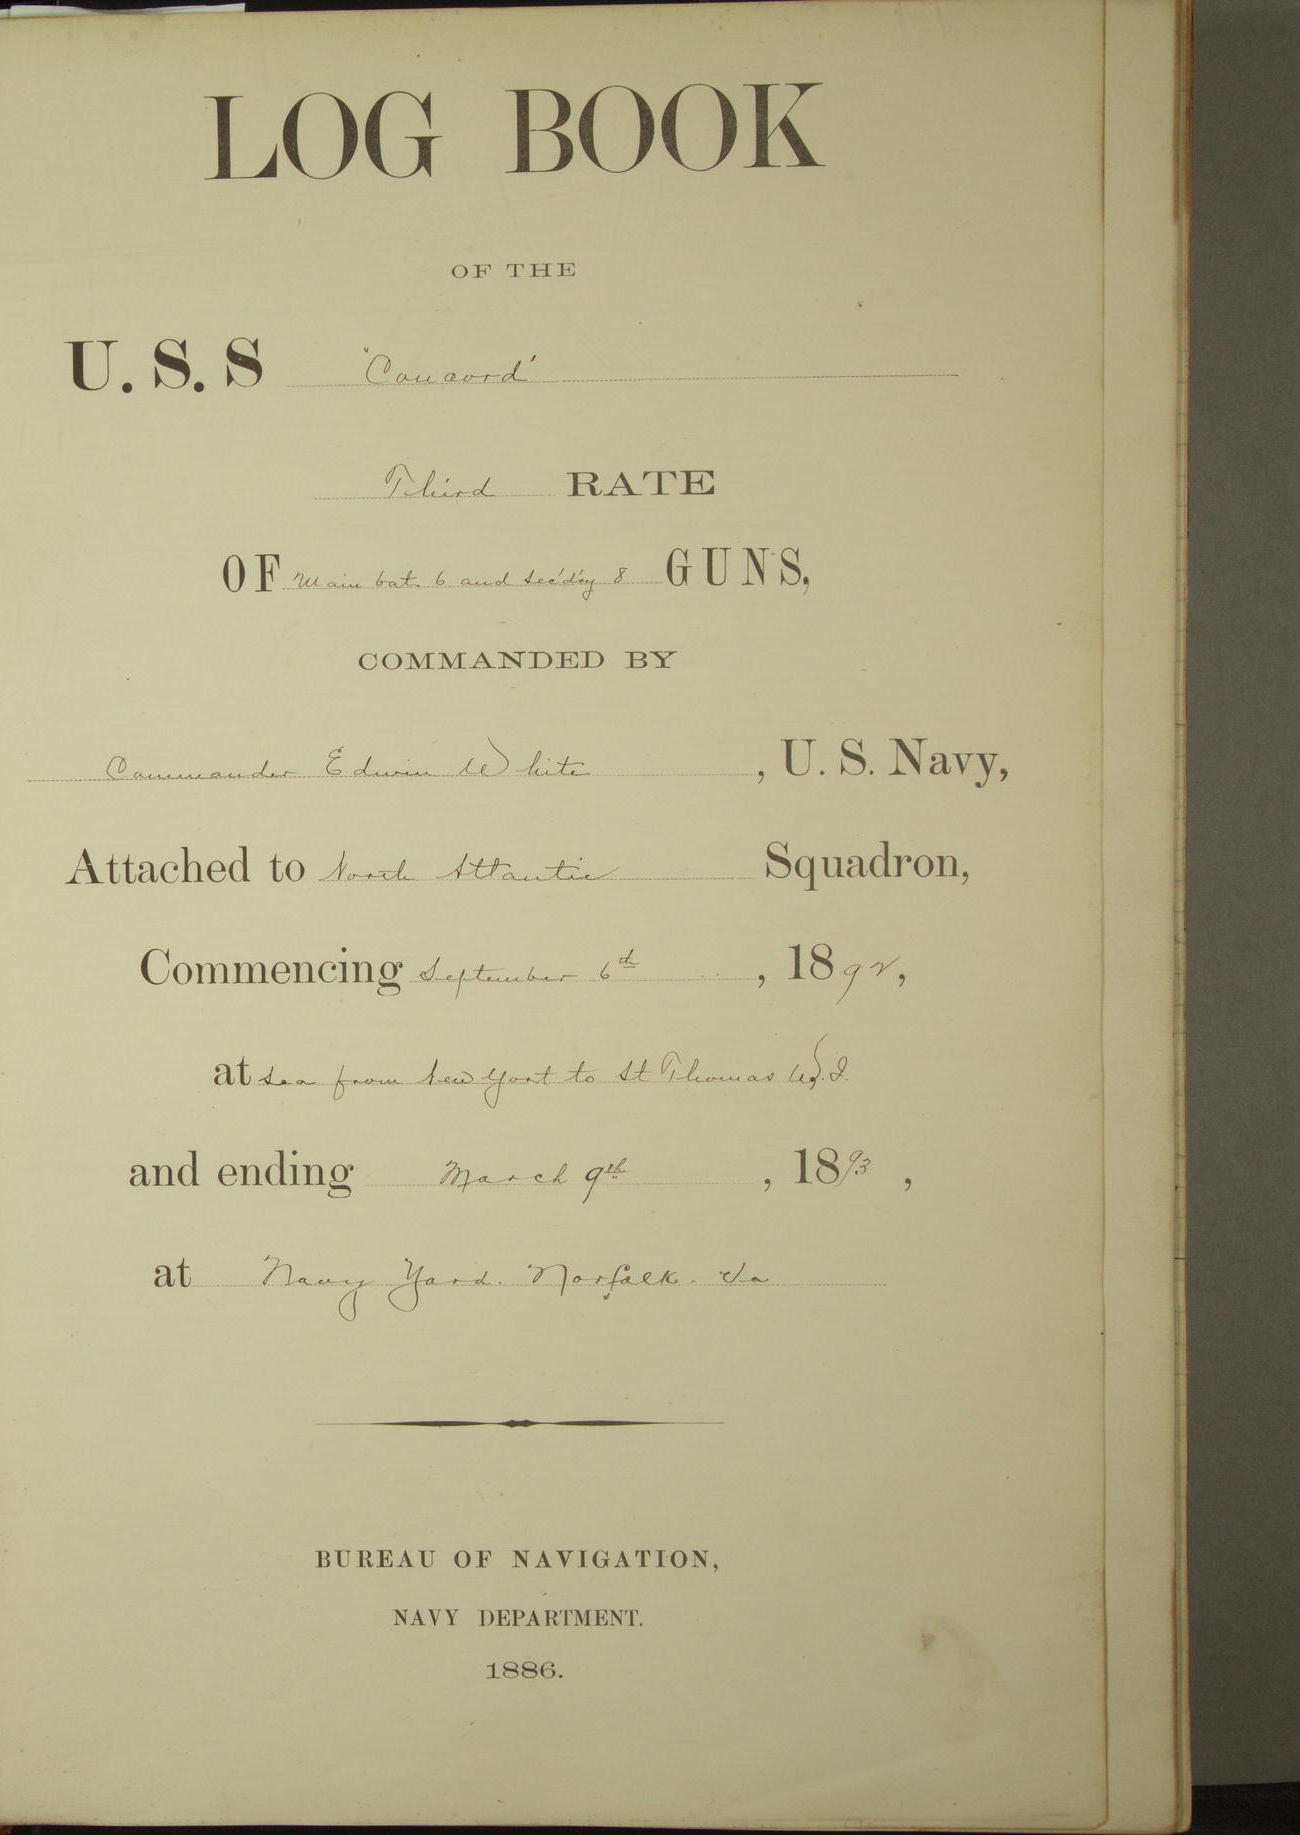 LOG BOOK
OF THE
U. S. S "Concord"
Third RATE
OF Main bat. 6 and Sec'd'y 8 GUNS,
COMMANDED BY
Commander Edwin White , U. S. Navy,
Attached to North Atlantic Squadron,
Commencing September 6th , 1892,
at Sea from New York to St Thomas W. I.
and ending March 9th , 1893 ,
at Navy Yard. Norfolk. Va
BUREAU OF NAVIGATION,
NAVY DEPARTMENT.
1886.